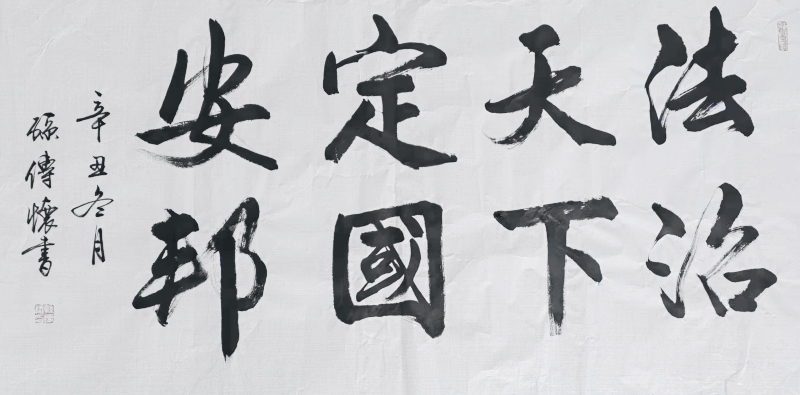 法治
天下
定國
安邦
辛丑冬月
傳懷書